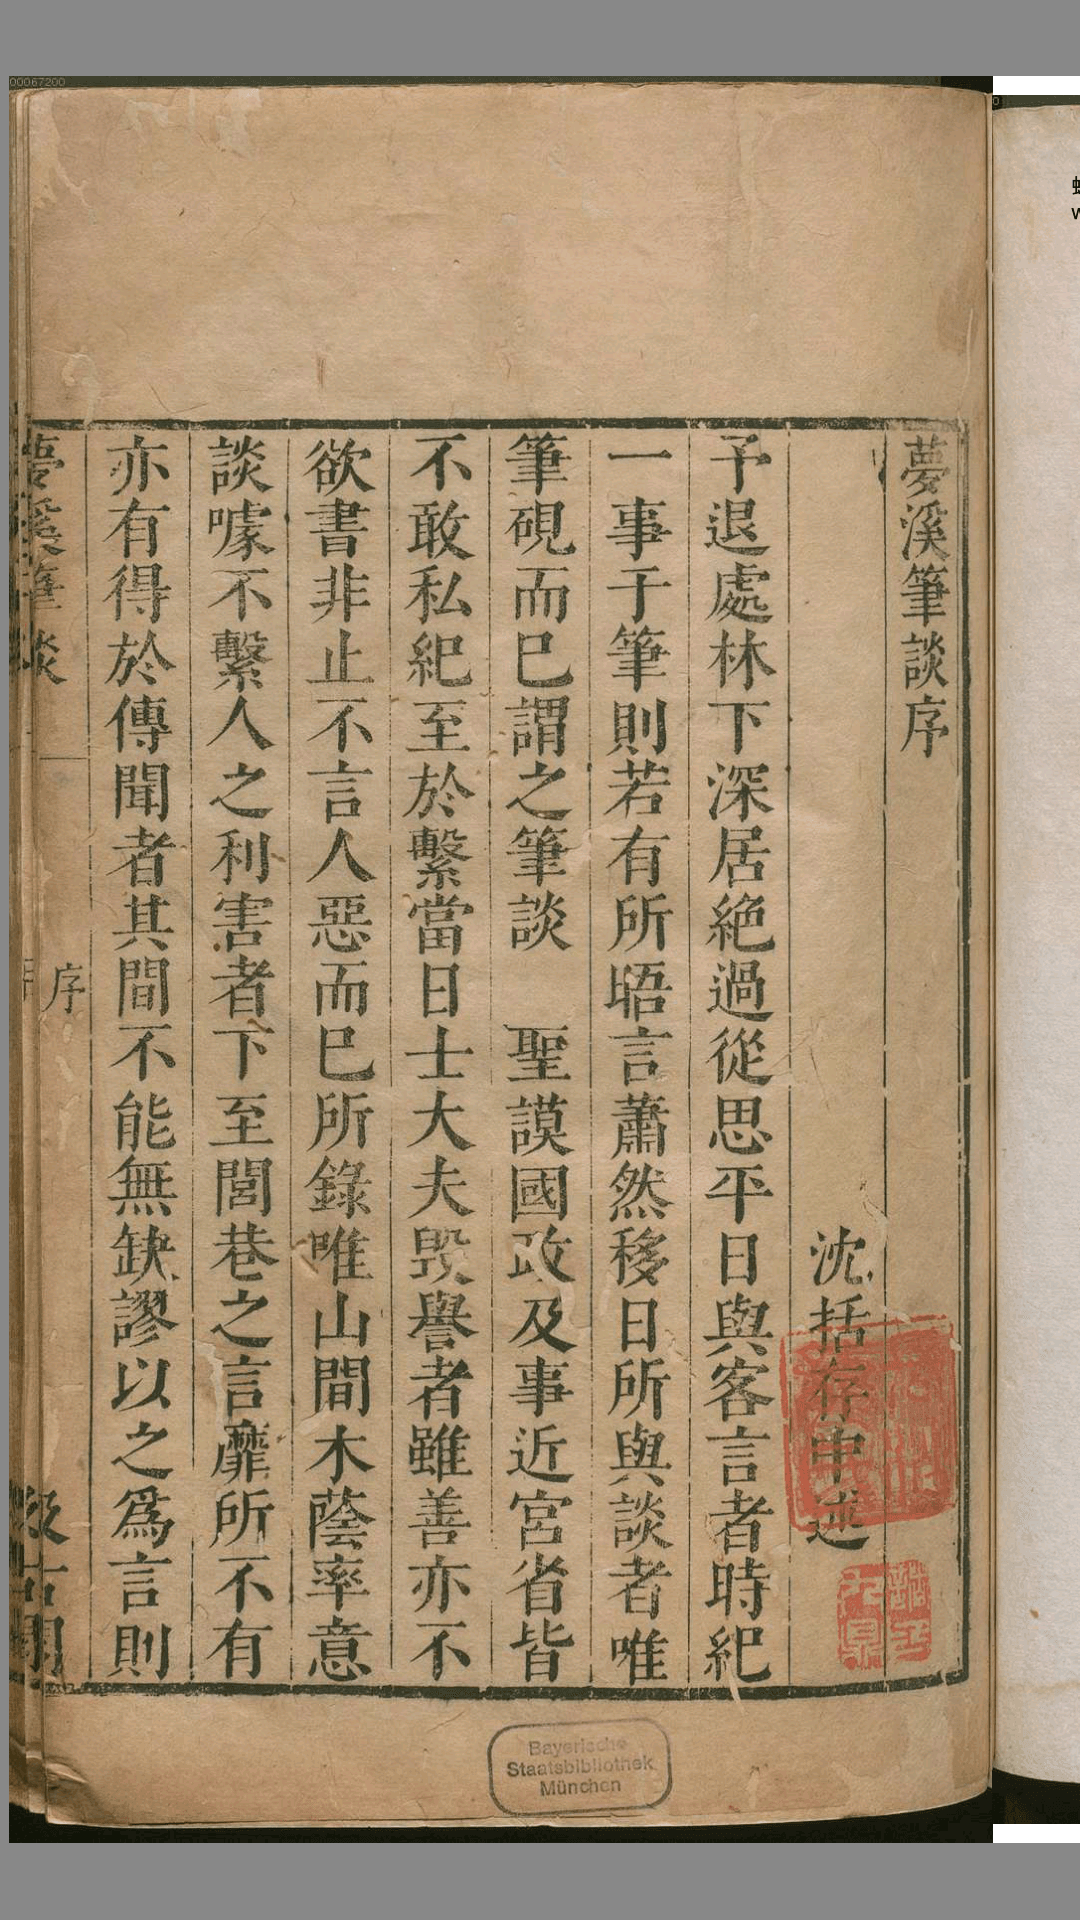 夢溪筆談序
沈括存中述
予退處林下深居絶過從思平日與客言者時紀
一事于筆則若有所晤言蕭然移日所與談者唯
筆硯而巳謂之筆談　聖謨國政及事近宮省皆
不敢私紀至於繫當日士大夫毀譽者雖善亦不
欲書非止不言人惡而巳所錄唯山間木蔭率意
談噱不繫人之利害者下至閭巷之言靡所不有
亦有得於傳聞者其間不能無缺謬以之爲言則
夢溪筆談
序
汲古閣
Bayerische
Staatsbibliothek
München
00067200